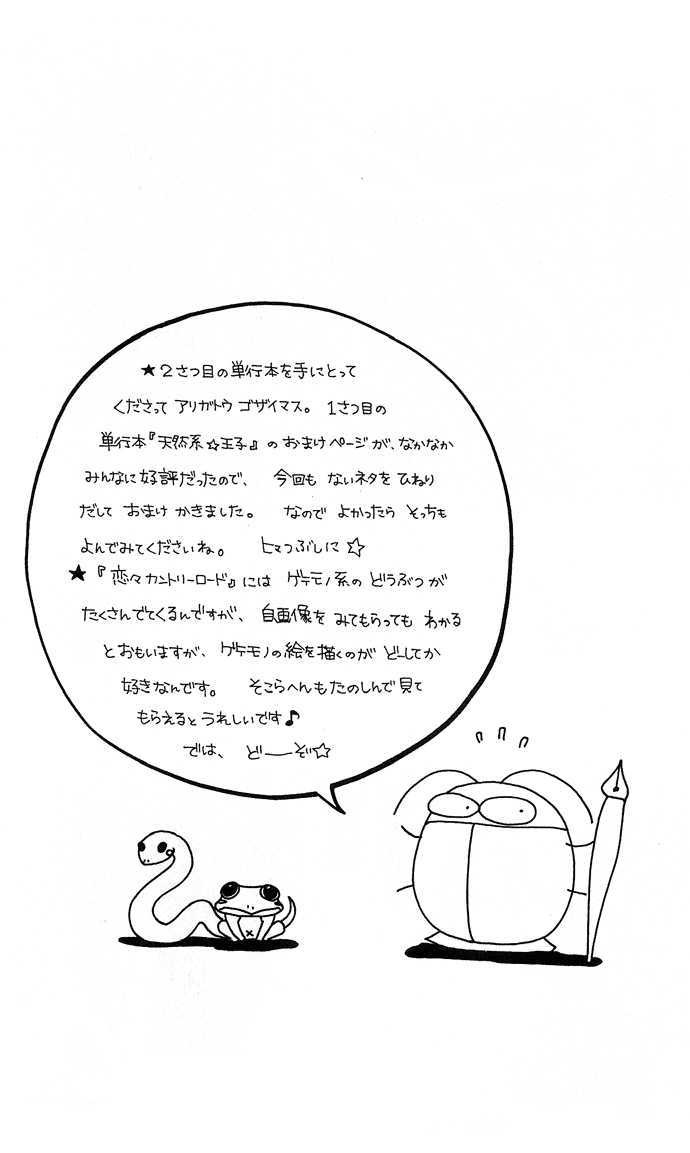 ★2さつ目の単行本を手にとって
くださって アリガトウ ゴザイマス。 1さつ目の
単行本『天然系☆王子』の おまけページが、なかなか
みんなに好評だったので、 今回も ないネタを ひねり
だして おまけ かきました。 なので よかったら そっちも
よんでみてくださいね。 ヒマつぶしに☆
★『恋々カントリーロード』には ゲテモノ系の どうぶつが
たくさんでてくるんですが、 自画像を みてもらっても わかる
とおもいますが、 ゲテモノの絵を描くのが どーしてか
好きなんです。 そこらへんもたのしんで見て
もらえると うれしいです♪
では、 ど――ぞ☆